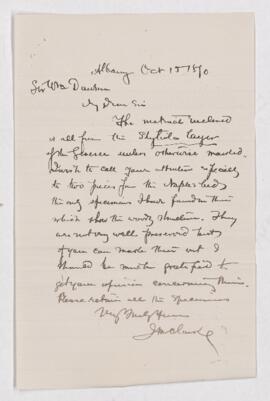 Albany Oct 15 1890
Sir Wm Dawson
My Dear Sir
The material enclosed
is all from the Styliola layer
of the Genesee unless otherwise marked.
I wish to call your attention especially
to two pieces from the Naples beds
the only specimens I have found in them
which show the woody structure. They
are not very well preserved but
if you can make them out I
should be much gratified to
get your opinion concerning them.
Please return all the specimens
Very truly yours
J M Clarke